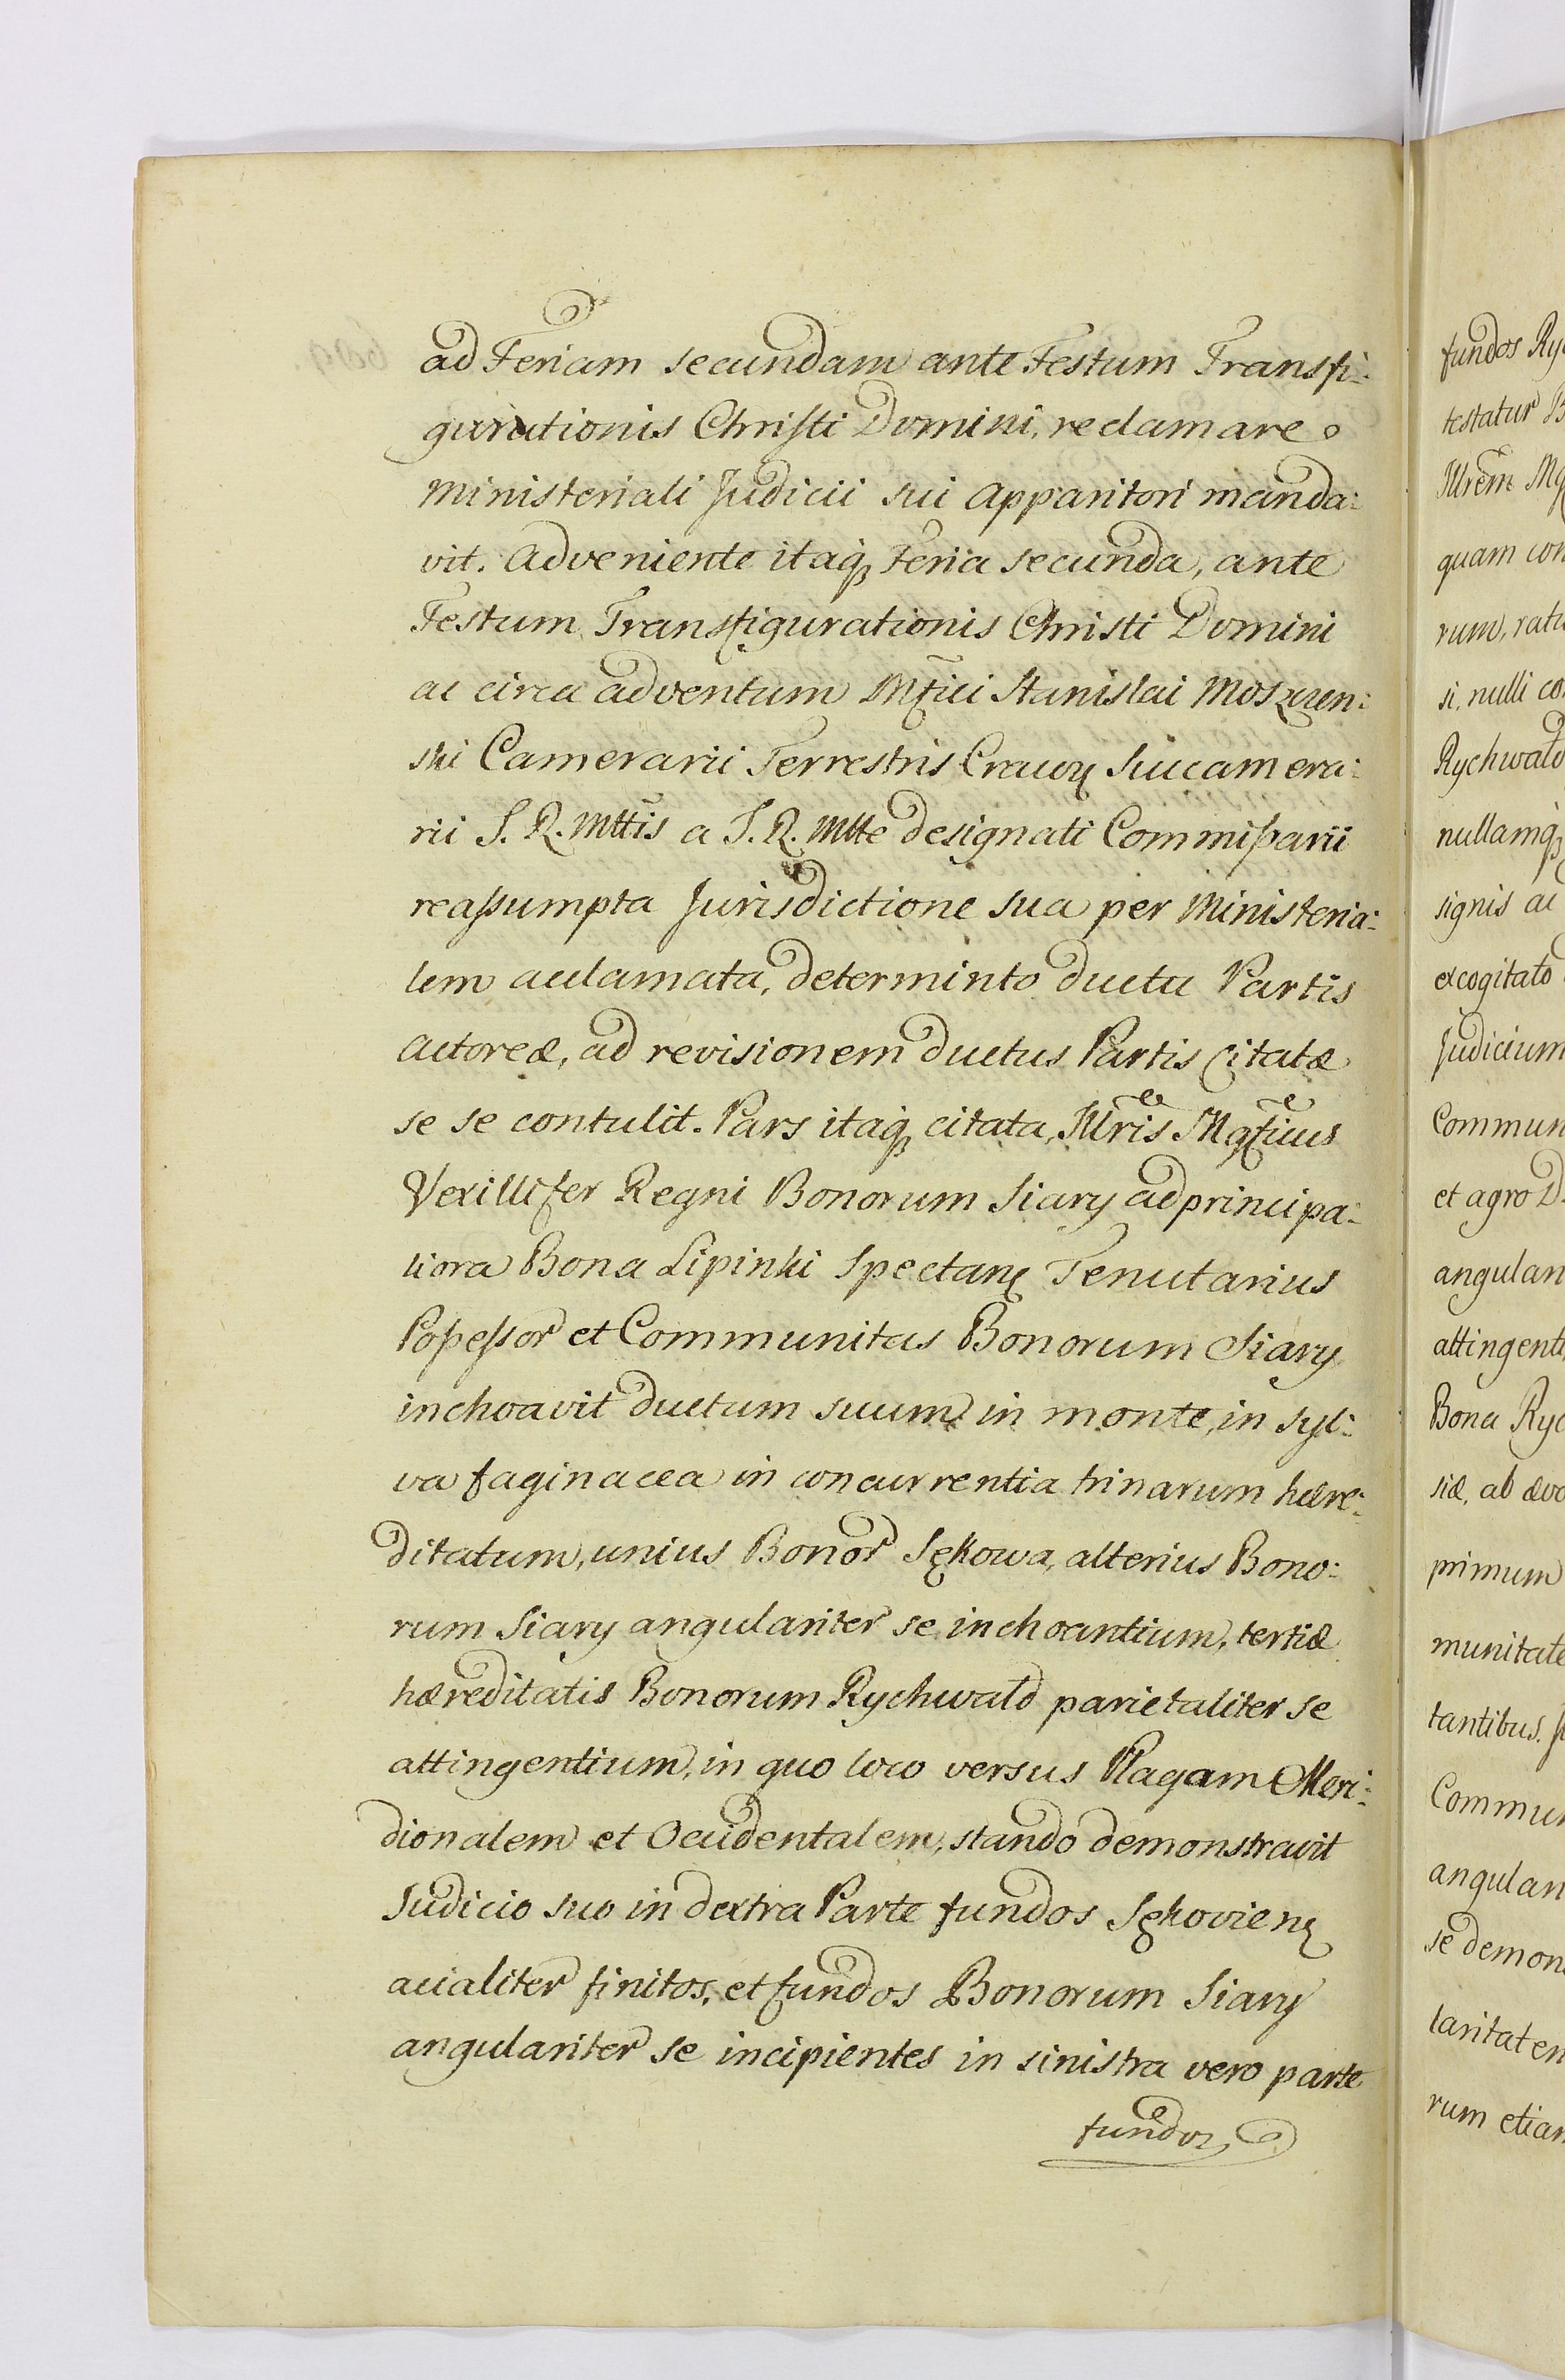 ad Feriam secundam ante Festum Transfi:
gurationis Christi Domini, reclamare
Ministeriali Judicii sui Apparitori manda:
vit. Adveniente itaq́ Feria secunda, ante
Festum Transfigurationis Christi Domini
ac circa adventum Mfici Stanislai Moszczen:
ski Camerarii Terrestris Cracoẟ Succamera:
rii S. R. Mttis a S. R. Mtte designati Commissarii
reassumpta Jurisdictione sua per Ministeria:
lem acclamata, determinto ductu Partis
Actoreæ, ad revisionem ductus Partis Citatæ
se se contulit. Pars itaq́ citata, Illris Mgficus
Vexillifer Regni Bonorum Siary ad principa:
liora Bona Lipinki Spectanẟ Tenutarius
Possessor et Communitas Bonorum Siary
inchoavit ductum suum in monte, in syl:
va faginacea in concurrentia trinarum hære:
ditatum, unius Bonor Sękowa, alterius Bono:
rum Siary angulariter se inchoantium, tertiæ
hæreditatis Bonorum Rychwald parietaliter se
attingentium, in quo loco versus Plagam Meri:
dionalem et Occidentalem, stando demonstravit
Judicio suo in dextra Parte fundos Sękovienẟ
acialiter finitos, et fundos Bonorum Siary
angulariter se incipientes in sinistra vero parte
fundos
fundos
testatur
Illrem
quam
rum,
si, nulli
Rychwald
nullamq́
signis ac
excogitato
Judicium
et agro
Bona
siæ, ab
primum
tantibus.
rum